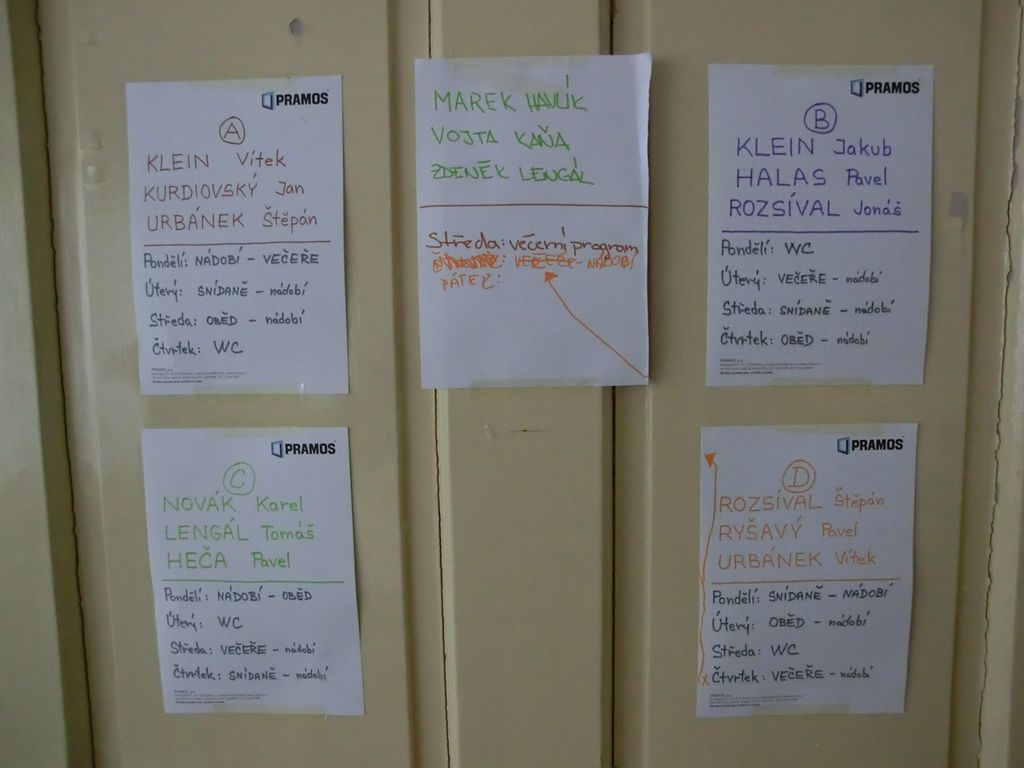 PRAMOS
A
KLEIN Vítek
KURDIOVSKÝ Jan
URBÁNEK Štěpán
Pondělí: NÁDOBÍ - VEČEŘE
Úterý: SNÍDANĚ - nádobí
Středa: OBĚD - nádobí
Čtvrtek: WC
MAREK HAVLÍK
VOJTA KAŇA
ZDENĚK LENGÁL
Středa: večerní program
VEČEŘE - NÁDOBÍ
PÁTEK:
PRAMOS
B
KLEIN Jakub
HALAS Pavel
ROZSÍVAL Jonáš
Pondělí: WC
Úterý: VEČEŘE - nádobí
Středa: SNÍDANĚ - nádobí
Čtvrtek: OBĚD - nádobí
PRAMOS
C
NOVÁK Karel
LENGÁL Tomáš
HEČA Pavel
Pondělí: NÁDOBÍ - OBĚD
Úterý: WC
Středa: VEČEŘE - nádobí
Čtvrtek: SNÍDANĚ - nádobí
PRAMOS
D
ROZSÍVAL Štěpán
RYŠAVÝ Pavel
URBÁNEK Vítek
Pondělí: SNÍDANĚ - NÁDOBÍ
Úterý: OBĚD - nádobí
Středa: WC
x Čtvrtek: VEČEŘE - nádobí